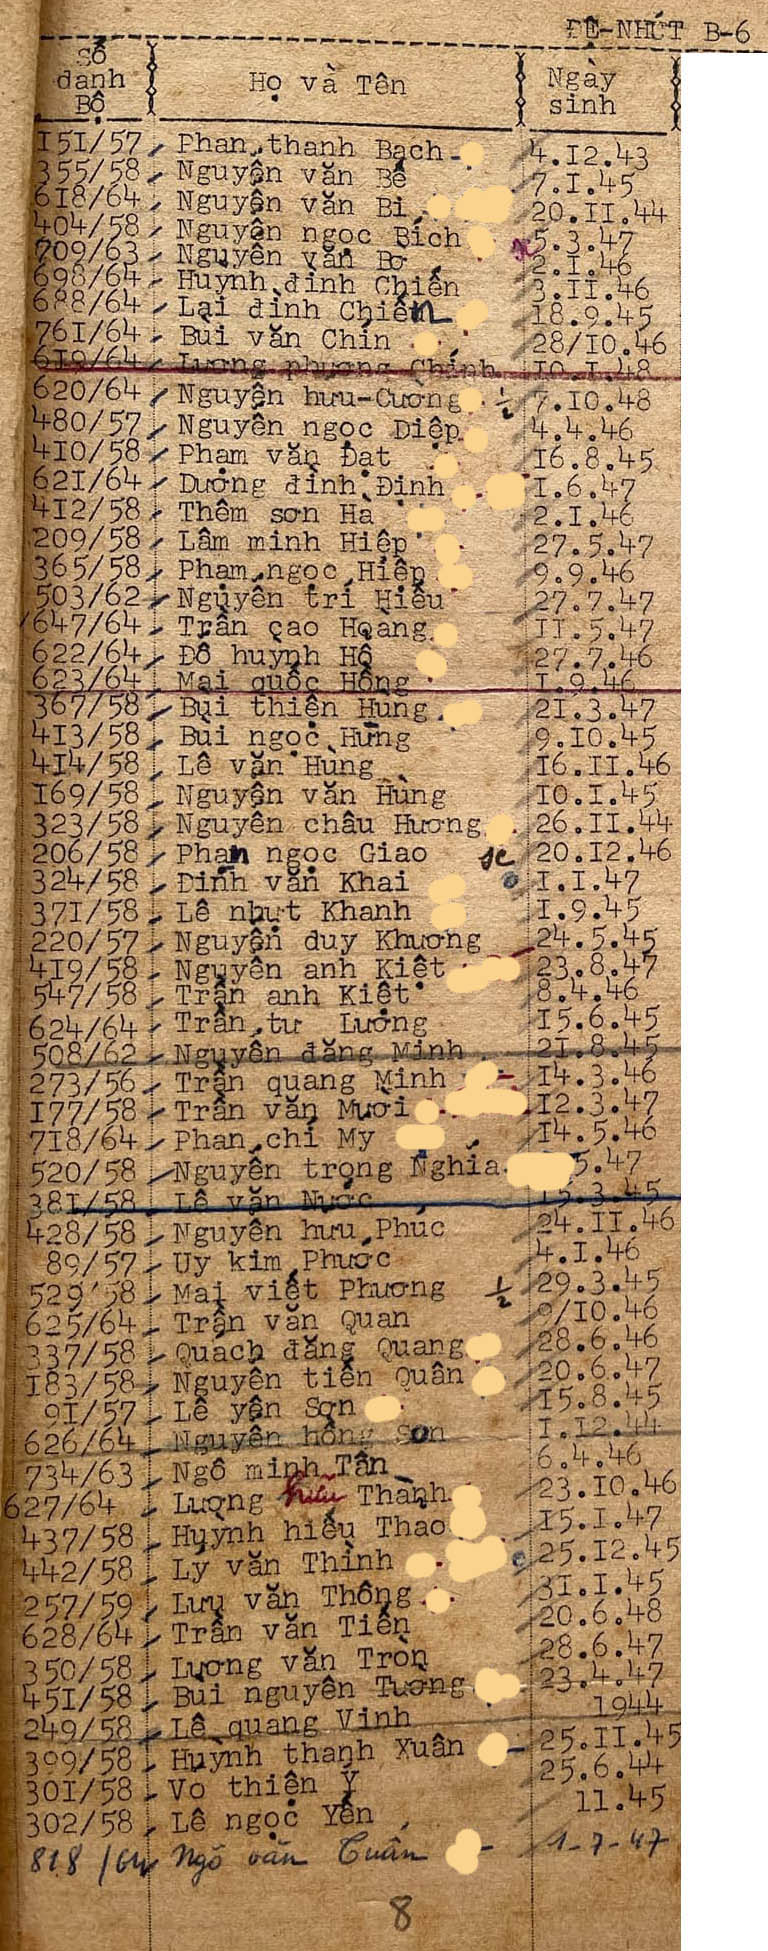 ĐỆ-NHỨT B-6
Số danh Bộ Họ và Tên Ngày sinh
151/57 Phan thanh Bạch 4.12.43
355/58 Nguyễn văn Bê 7.1.45
618/64 Nguyễn văn Bi 20.11.44
404/58 Nguyễn ngọc Bích 5.3.47
709/63 Nguyễn văn Bo 2.1.46
698/64 Huỳnh đình Chiến 3.11.46
688/64 Lại đình Chiến 18.9.45
761/64 Bùi văn Chín 28/10.46
619/64 Lương phương Chính 10.1.48
620/64 Nguyễn hưu-Cương ½ 7.10.48
480/57 Nguyễn ngọc Diệp 4.4.46
410/58 Phạm văn Đạt 16.8.45
621/64 Dương đình Định 1.6.47
412/58 Thêm sơn Hà 2.1.46
209/58 Lâm minh Hiệp 27.5.47
365/58 Phạm ngọc Hiệp 9.9.46
503/62 Nguyễn trí Hiếu 27.7.47
647/64 Trần cao Hoàng 11.5.47
622/64 Đỗ huỳnh Hộ 27.7.46
623/64 Mai quốc Hồng 1.9.46
367/58 Bùi thiện Hùng 21.3.47
413/58 Bùi ngọc Hưng 9.10.45
414/58 Lê văn Hùng 16.11.46
169/58 Nguyễn văn Hùng 10.1.45
323/58 Nguyễn châu Hương 26.11.44
206/58 Phan ngọc Giao sc 20.12.46
324/58 Đinh văn Khai 1.1.47
371/58 Lê nhựt Khanh 1.9.45
220/57 Nguyễn duy Khương 24.5.45
419/58 Nguyễn anh Kiệt 23.8.47
547/58 Trần anh Kiệt 8.4.46
624/64 Trần tư Lương 15.6.45
508/62 Nguyễn đăng Minh 21.8.45
273/56 Trần quang Minh 14.3.46
177/58 Trần văn Mười 12.3.47
718/64 Phan chí My 14.5.46
520/58 Nguyễn trọng Nghĩa 5.47
381/58 Lê văn Nước 15.3.45
428/58 Nguyễn hưu Phúc 24.11.46
89/57 Uy kim Phước 4.1.46
529/58 Mai viết Phương ½ 29.3.45
625/64 Trần văn Quan 9/10.46
337/58 Quách đăng Quang 28.6.46
183/58 Nguyễn tiến Quân 20.6.47
91/57 Lê yên Sơn 15.8.45
626/64 Nguyễn hồng Sơn 1.12.44
734/63 Ngô minh Tân 6.4.46
627/64 Lương hiếu Thành 23.10.46
437/58 Huỳnh hiếu Thao 15.1.47
442/58 Lý văn Thình 25.12.45
257/59 Lưu văn Thông 31.1.45
628/64 Trần văn Tiên 20.6.48
350/58 Lương văn Tròn 28.6.47
451/58 Bùi nguyên Tường 23.4.47
249/58 Lê quang Vinh 1944
399/58 Huỳnh thanh Xuân 25.11.45
301/58 Vo thiện Ý 25.6.44
302/58 Lê ngọc Yến 11.45
818/64 Ngô văn Cuân 1-7-47
8